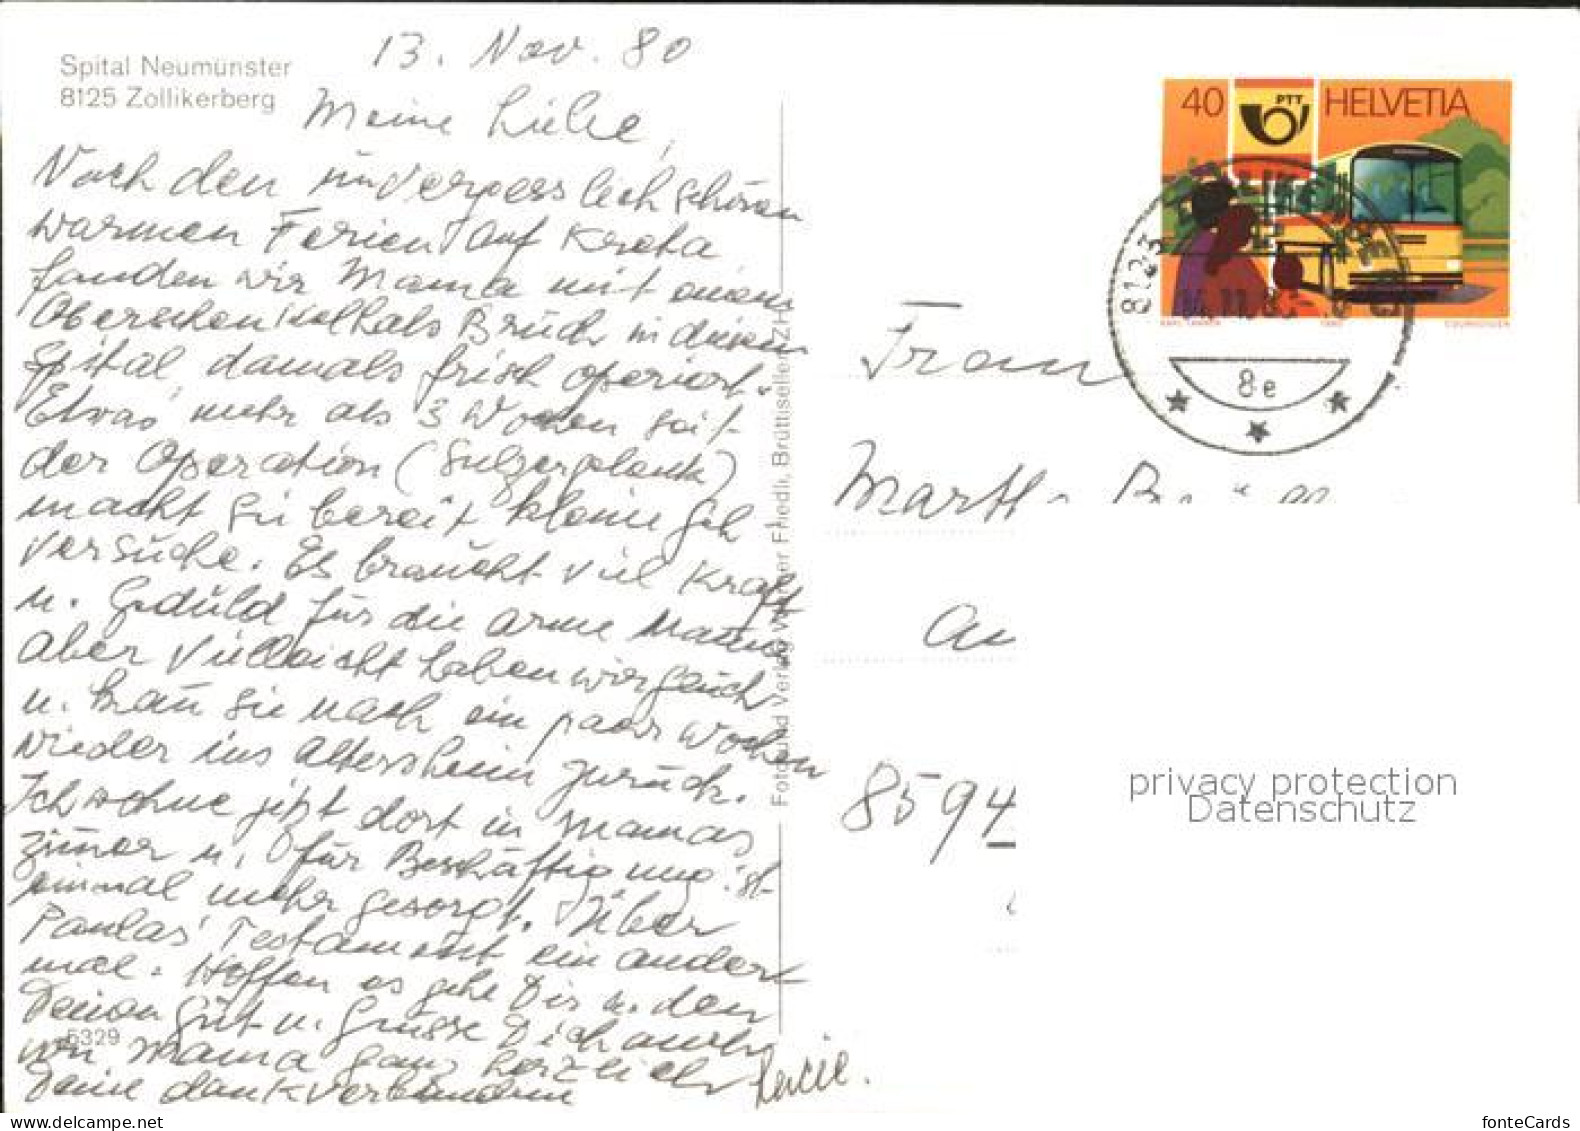 Spital Neumünster
8125 Zollikerberg
13. Nov. 80
Meine Liebe,
Nach den unvergesslich schönen
warmen Ferien auf Kreta
fanden wir Mama mit einem
Oberschenkelhals Bruch in diesem
Spital, damals frisch operiert.
Etwas mehr als 3 Wochen seit
der Operation (Sulzerplank)
macht sie bereit kleine Geh
versuche. Es braucht viel Kraft
u. Geduld für die arme Mama
aber vielleicht haben wir glück
u. kann sie nach ein paar Wochen
wieder ins Altersheim zurück.
Ich wohne jetzt dort in Mamas
Zimmer u. für Beschäftigung ist
einmal mehr gesorgt. Über
Paulas Testament ein ander
mal. Hoffen es gehe Dir u. den
Deinen gut u. grüsse Dich auch
von Mama ganz herzlich
Deine dankverbundene
5329
Foto und Verlag Friedli, Brüttisellen ZH
40 PTT HELVETIA
KARL LANGER 1980 COURVOISIER
8123
14.11.80
8e
Frau
Martha
8594
privacy protection
Datenschutz
fonteCards